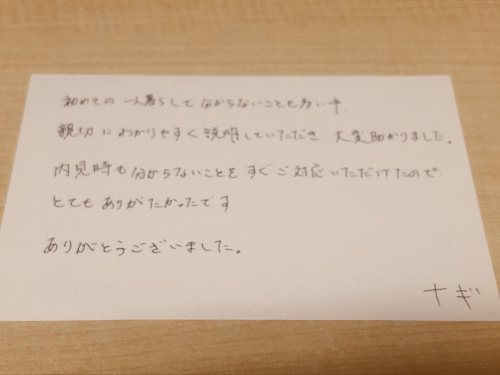 初めての一人暮らしで分からないことも多い中
親切にわかりやすく説明していただき、大変助かりました。
内見時も分からないことをすぐご対応いただけたので
とてもありがたかったです
ありがとうございました。
ナギ